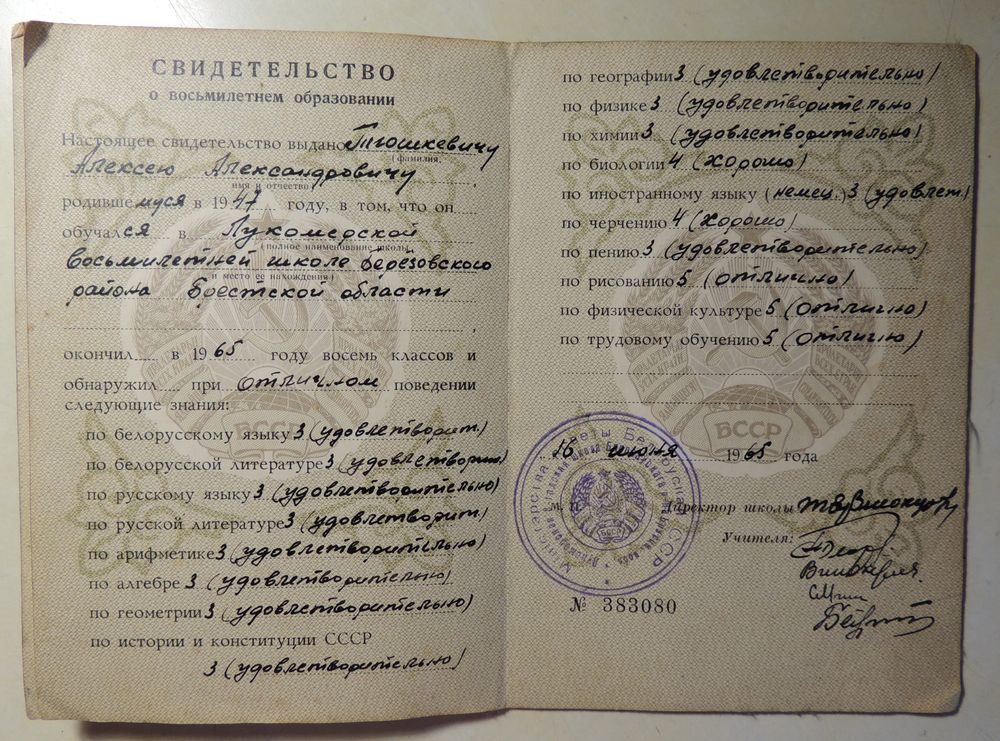 СВИДЕТЕЛЬСТВО
о восьмилетнем образовании
Настоящее свидетельство выдано Тюшкевичу
(фамилия,
Алексею Александровичу
имя и отчество)
родившемуся в 1947 году, в том, что он
обучался в Лукомерской
(полное наименование школы
восьмилетней школе Березовского
и место ее нахождения)
района Брестской области
окончил в 1965 году восемь классов и
обнаружил при отличном поведении
следующие знания:
по белорусскому языку 3 (удовлетворит.)
по белорусской литературе 3 (удовлетворит.)
по русскому языку 3 (удовлетворительно)
по русской литературе 3 (удовлетворит.)
по арифметике 3 (удовлетворительно)
по алгебре 3 (удовлетворительно)
по геометрии 3 (удовлетворительно)
по истории и конституции СССР
3 (удовлетворительно)
БССР
по географии 3 (удовлетворительно)
по физике 3 (удовлетворительно)
по химии 3 (удовлетворительно)
по биологии 4 (хорошо)
по иностранному языку (немец.) 3 (удовлет.)
по черчению 4 (хорошо)
по пению 3 (удовлетворительно)
по рисованию 5 (отлично)
по физической культуре 5 (отлично)
по трудовому обучению 5 (отлично)
БССР
16 июня 1965 года
м. п.
Директор школы
Учителя:
№ 383080